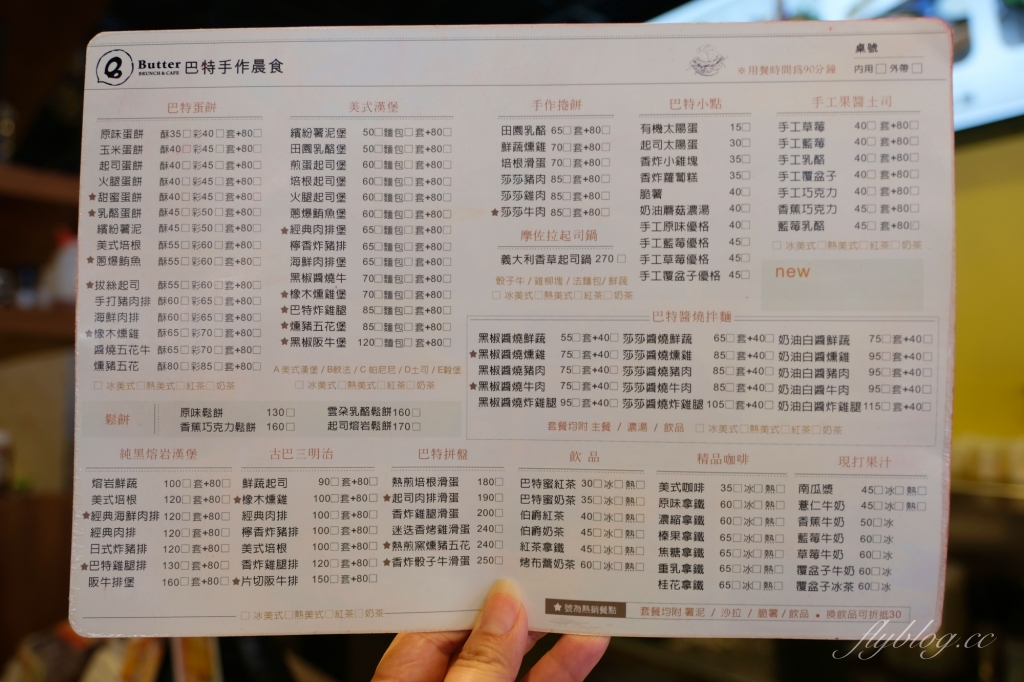 Butter 巴特手作晨食
BRUNCH & CAFE
桌號
※用餐時間為90分鐘 內用□ 外帶□
巴特蛋餅
原味蛋餅 酥35□彩40□套+80□
玉米蛋餅 酥40□彩45□套+80□
起司蛋餅 酥40□彩45□套+80□
火腿蛋餅 酥40□彩45□套+80□
★甜蜜蛋餅 酥40□彩45□套+80□
★乳酪蛋餅 酥45□彩50□套+80□
繽紛薯泥 酥45□彩50□套+80□
美式培根 酥55□彩60□套+80□
★蔥爆鮪魚 酥55□彩60□套+80□
★拔絲起司 酥55□彩60□套+80□
手打豬肉排 酥60□彩65□套+80□
海鮮肉排 酥60□彩65□套+80□
★橡木燻雞 酥65□彩70□套+80□
醬燒五花牛 酥65□彩70□套+80□
燻豬五花 酥80□彩85□套+80□
□冰美式□熱美式□紅茶□奶茶
美式漢堡
繽紛薯泥堡 50□麵包□套+80□
田園乳酪堡 50□麵包□套+80□
煎蛋起司堡 60□麵包□套+80□
培根起司堡 60□麵包□套+80□
火腿起司堡 60□麵包□套+80□
蔥爆鮪魚堡 60□麵包□套+80□
★經典肉排堡 65□麵包□套+80□
檸香炸豬排 65□麵包□套+80□
海鮮肉排堡 65□麵包□套+80□
黑椒醬燒牛 70□麵包□套+80□
★橡木燻雞堡 70□麵包□套+80□
★巴特炸雞腿 85□麵包□套+80□
★燻豬五花堡 85□麵包□套+80□
★黑椒阪牛堡 120□麵包□套+80□
A美式漢堡 / B軟法 / C帕尼尼 / D土司 / E穀堡
□冰美式□熱美式□紅茶□奶茶
手作捲餅
田園乳酪 65□套+80□
鮮蔬燻雞 70□套+80□
培根滑蛋 70□套+80□
莎莎豬肉 85□套+80□
莎莎雞肉 85□套+80□
★莎莎牛肉 85□套+80□
摩佐拉起司鍋
義大利香草起司鍋 270□
骰子牛 / 雞柳塊 / 法麵包 / 鮮蔬
□冰美式□熱美式□紅茶□奶茶
巴特小點
有機太陽蛋 15□
起司太陽蛋 30□
香炸小雞塊 35□
香炸蘿蔔糕 35□
脆薯 40□
奶油蘑菇濃湯 40□
手工原味優格 40□
手工藍莓優格 45□
手工草莓優格 45□
手工覆盆子優格 45□
手工果醬土司
手工草莓 40□套+80□
手工藍莓 40□套+80□
手工乳酪 40□套+80□
手工覆盆子 40□套+80□
手工巧克力 40□套+80□
香蕉巧克力 45□套+80□
藍莓乳酪 45□套+80□
□冰美式□熱美式□紅茶□奶茶
new
巴特醬燒拌麵
黑椒醬燒鮮蔬 55□套+40□ 莎莎醬燒鮮蔬 65□套+40□ 奶油白醬鮮蔬 75□套+40□
★黑椒醬燒燻雞 75□套+40□ 莎莎醬燒燻雞 85□套+40□ 奶油白醬燻雞 95□套+40□
黑椒醬燒豬肉 75□套+40□ 莎莎醬燒豬肉 85□套+40□ 奶油白醬豬肉 95□套+40□
★黑椒醬燒牛肉 75□套+40□ 莎莎醬燒牛肉 85□套+40□ 奶油白醬牛肉 95□套+40□
黑椒醬燒炸雞腿 95□套+40□ 莎莎醬燒炸雞腿 105□套+40□ 奶油白醬炸雞腿 115□套+40□
套餐均附 主餐 / 濃湯 / 飲品 □冰美式□熱美式□紅茶□奶茶
鬆餅
原味鬆餅 130□ 雲朵乳酪鬆餅160□
香蕉巧克力鬆餅 160□ 起司熔岩鬆餅170□
純黑熔岩漢堡
熔岩鮮蔬 100□套+80□
美式培根 120□套+80□
★經典海鮮肉排 120□套+80□
經典肉排 120□套+80□
日式炸豬排 120□套+80□
★巴特雞腿排 130□套+80□
阪牛排堡 160□套+80□
古巴三明治
鮮蔬起司 90□套+80□
★橡木燻雞 100□套+80□
經典肉排 100□套+80□
檸香炸豬排 100□套+80□
美式培根 100□套+80□
香炸雞腿排 120□套+80□
★片切阪牛排 150□套+80□
□冰美式□熱美式□紅茶□奶茶
巴特拼盤
熱煎培根滑蛋 180□
★起司肉排滑蛋 190□
香炸雞腿滑蛋 200□
迷迭香烤雞滑蛋 240□
★熱煎窯燻豬五花 240□
★香炸骰子牛滑蛋 250□
飲品
巴特蜜紅茶 30□冰□熱□
巴特蜜奶茶 35□冰□熱□
伯爵紅茶 40□冰□熱□
伯爵奶茶 45□冰□熱□
紅茶拿鐵 45□冰□熱□
烤布蕾奶茶 60□冰□熱□
精品咖啡
美式咖啡 35□冰□熱□
原味拿鐵 60□冰□熱□
濃縮拿鐵 60□冰□熱□
榛果拿鐵 65□冰□熱□
焦糖拿鐵 65□冰□熱□
重乳拿鐵 65□冰□熱□
桂花拿鐵 65□冰□熱□
現打果汁
南瓜漿 45□冰□熱□
薏仁牛奶 45□冰□熱□
香蕉牛奶 50□冰
藍莓牛奶 60□冰
草莓牛奶 60□冰
覆盆子牛奶 60□冰
覆盆子冰茶 60□冰
★號為熱銷餐點 套餐均附 薯泥 / 沙拉 / 脆薯 / 飲品 • 換飲品可折抵30
flyblog.cc